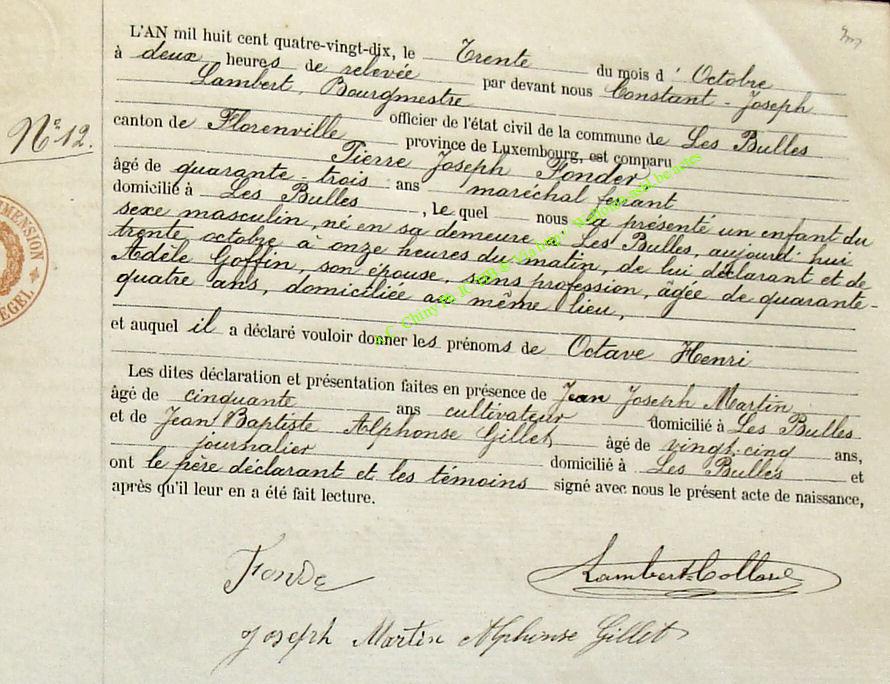 L'AN mil huit cent quatre-vingt-dix, le Trente du mois d' Octobre
à deux heures de relevée par devant nous Constant-Joseph
Lambert, Bourgmestre
officier de l'état civil de la commune de Les Bulles
canton de Florenville province de Luxembourg, est comparu
Pierre Joseph Fonder
âgé de quarante-trois ans maréchal ferrant
domicilié à Les Bulles, lequel nous a présenté un enfant du
sexe masculin, né en sa demeure Les Bulles, aujourd'hui
trente octobre à onze heures du matin, de lui déclarant et de
Adèle Goffin, son épouse, sans profession, âgée de quarante-
quatre ans, domiciliée au même lieu,
et auquel il a déclaré vouloir donner les prénoms de Octave Henri
Les dites déclaration et présentation faites en présence de Jean Joseph Martin
âgé de cinquante ans cultivateur domicilié à Les Bulles
et de Jean Baptiste Alphonse Gillet âgé de vingt-cinq ans,
journalier domicilié à Les Bulles et
ont le père déclarant et les témoins signé avec nous le présent acte de naissance,
après qu'il leur en a été fait lecture.
N° 12.
DIMENSION
ZEGEL
Fonder
Lambert-Collard
Joseph Martin Alphonse Gillet